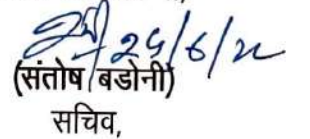 24/6/22
(संतोष बडोनी)
सचिव,